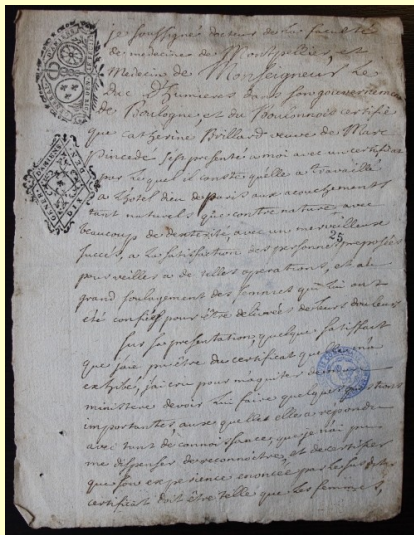 je soussigné docteur de la faculté
de medecine de Montpellier, et
Medecin de Monseigneur Le
duc d'humieres dans son gouvernement
de Boulogne, et du Boulonnois certifie
que Catherine Brillard veuve de Marc
s'est presentée a moi avec un certificat
par Lequel il conste qu'elle a travaillé
a L'hotel dieu de paris aux acouchements
tant naturels que contre nature, avec
beaucoup de dexterité, avec un merveilleux
succes, a La satisfaction des personnes preposées
pour veiller a de telles operations, et au
grand soulagement des femmes qui lui ont
été confiées pour être delivrées de leurs douleurs
Sur sa presentation, quelque satisfait
que j'aie pu être du certificat qu'elle m'a
exhibé, j'ai cru pour m'aquiter de mon
ministere devoir Lui faire quelques questions
importantes auxquelles elle a repondu
avec tant de connoissances, que je n'ai pu
me dispenser de reconnoitre, et de certifier
que son experience enoncée par le susdit
certificat doit être telle que les femmes